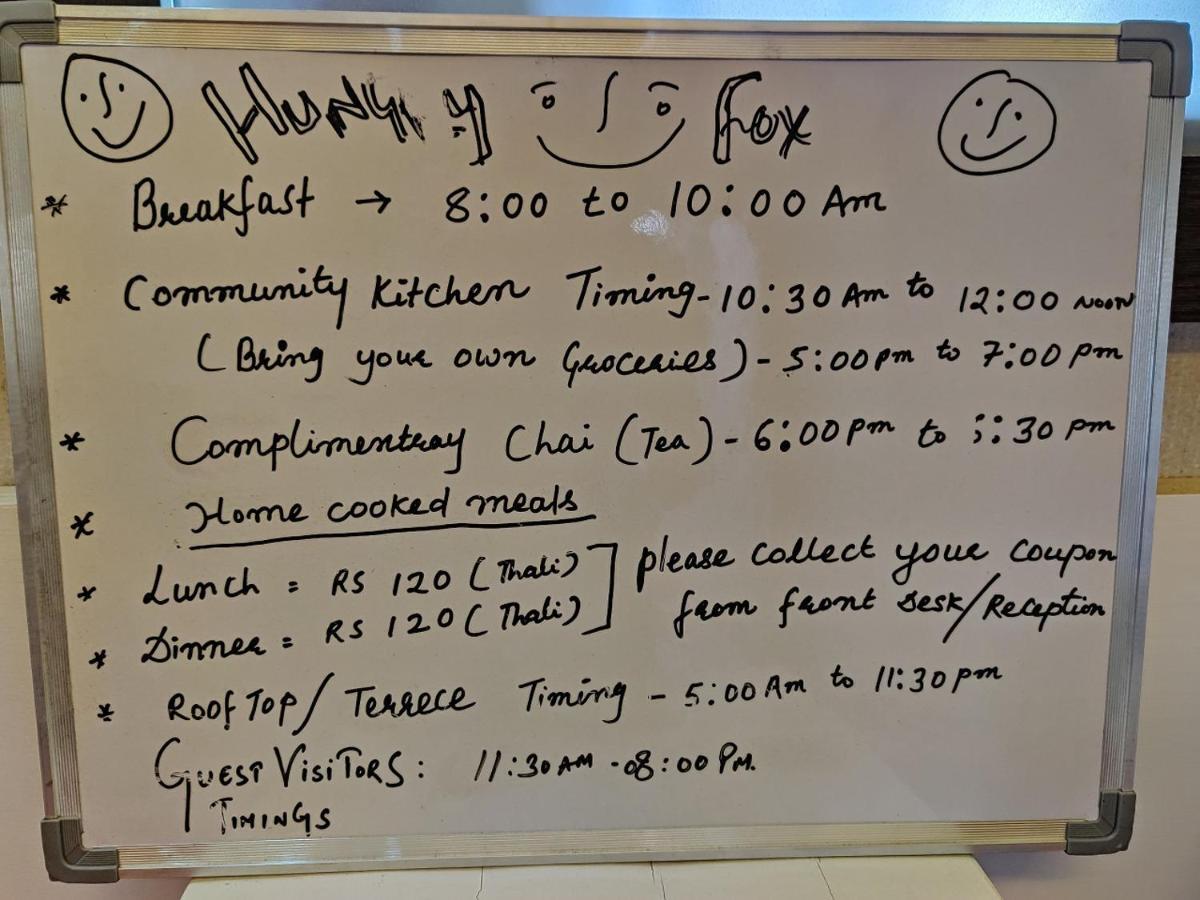 Hungry Fox
* Breakfast → 8:00 to 10:00 Am
* Community Kitchen Timing - 10:30 Am to 12:00 NOON
(Bring your own Groceries) - 5:00 pm to 7:00 pm
* Complimentray Chai (Tea) - 6:00 pm to :30 pm
* Home cooked meals
* Lunch = RS 120 (Thali) ] please collect your coupon
* Dinner = RS 120 (Thali) ] from front Desk/Reception
* Roof Top/Terrece Timing - 5:00 Am to 11:30 pm
GUEST VISITORS: 11:30 AM - 08:00 PM.
TIMINGS